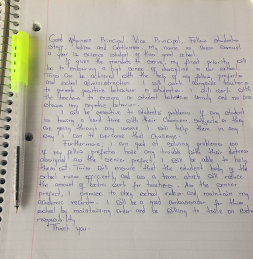 Good Afternoon Principal, Vice Principal, Fellow students
Ladies and Gentlemen. My name is
to be senior prefect of this great school
If given the mandate to serve, my first priority will
be to a high sense of discipline in our school.
This can be achieved with the help of my fellow prefects
and school administration. I will work alongside teachers
to promote positive behaviour in students. I will work with
the teachers to ensure the student behave and no one
shows any negative behavior.
I will be attentive to students problems. If any student
is having a hard time with their classes, subjects or they
are going through any issues. I will help them in any
way I can to overcome that challenge.
Furthermore, I am good at solving problems so
if my fellow prefects have any trouble with their duties
assigned as the senior prefect, I will be able to help
them out. This will ensure that the student body
school runs efficiently and as a team which will reduce
the amount of extra work for teachers. As the senior
prefect, I promise to obey school rules and maintain my
academic record. I will be a good ambassador for the
school by maintaining order and be willing to take on extra
responsibility
Thank you